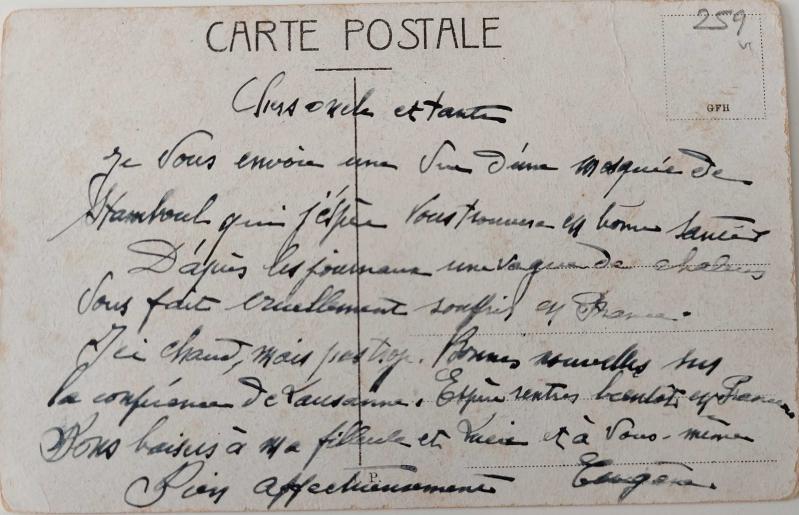 259
CARTE POSTALE
GFH
Chers oncle et tante
Je vous envoie une vue d'une mosquée de
Stamboul qui j'éspère vous trouvera en bonne santée
D'après les journaux une vague de chaleur
vous fait cruellement souffrir en France.
Ici chaud, mais pas trop. Bonnes nouvelles sur
la conférence de Lausanne. Espère rentrer bientôt en France
Bons baisers à ma filleule et Lucie et à vous-même
Bien affectueusement Eugène
P.